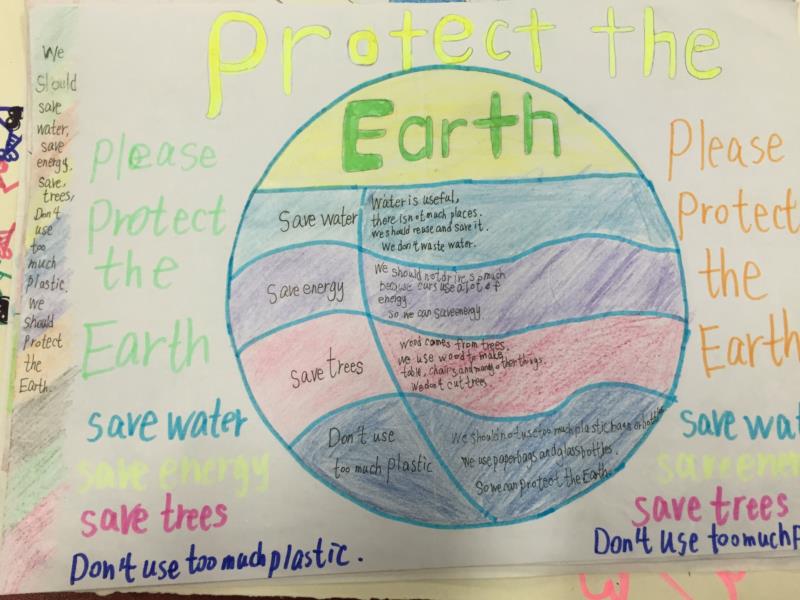 Protect the
Earth
We
Should
save
water,
save
energy.
save,
trees,
Don't
use
too
much
plastic.
We
should
Protect
the
Earth.
Please
Protect
the
Earth
save water
save energy
save trees
Don't use too much plastic.
Save water
Water is useful,
there is not much places.
we should reuse and save it.
We don't waste water.
Save energy
We should not drive so much
because cars use a lot of
energy.
So we can save energy
Save trees
Wood comes from trees,
we use wood to make
table, chairs and many other things.
We don't cut trees
Don't use
too much plastic
We should not use too much plastic bags or bottles
We use paper bags and glass bottles.
So we can protect the Earth.
Please
Protect
the
Earth
save wat
save ener
save trees
Don't use too much P